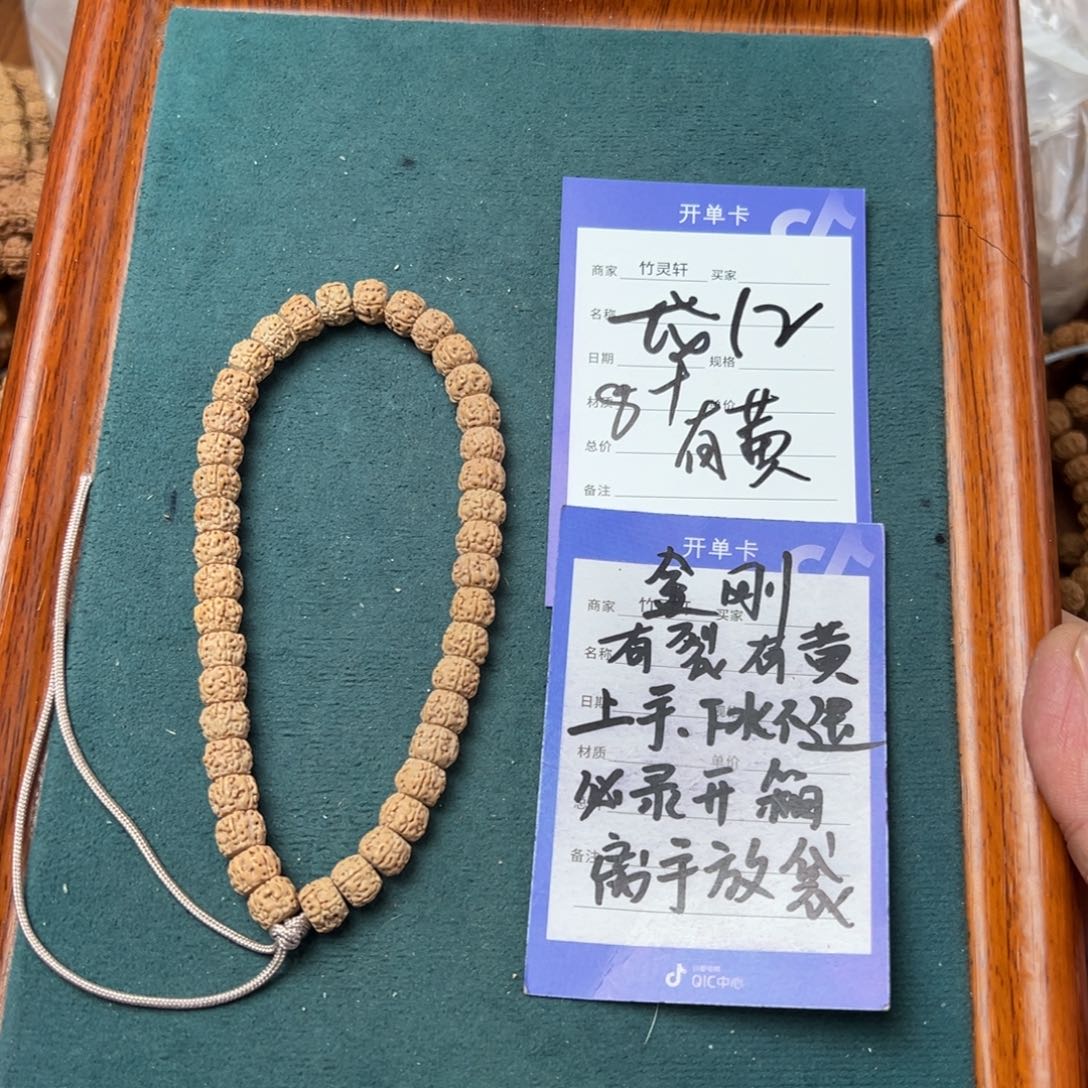 开单卡
商家 竹灵轩 买家
名称
12
日期 规格
8
有黄
总价
备注
开单卡
金刚
商家 买家
名称 有裂有黄
上手、下水不退
材质 单价
必录开箱
备注 离手放袋
抖音电商
QIC中心